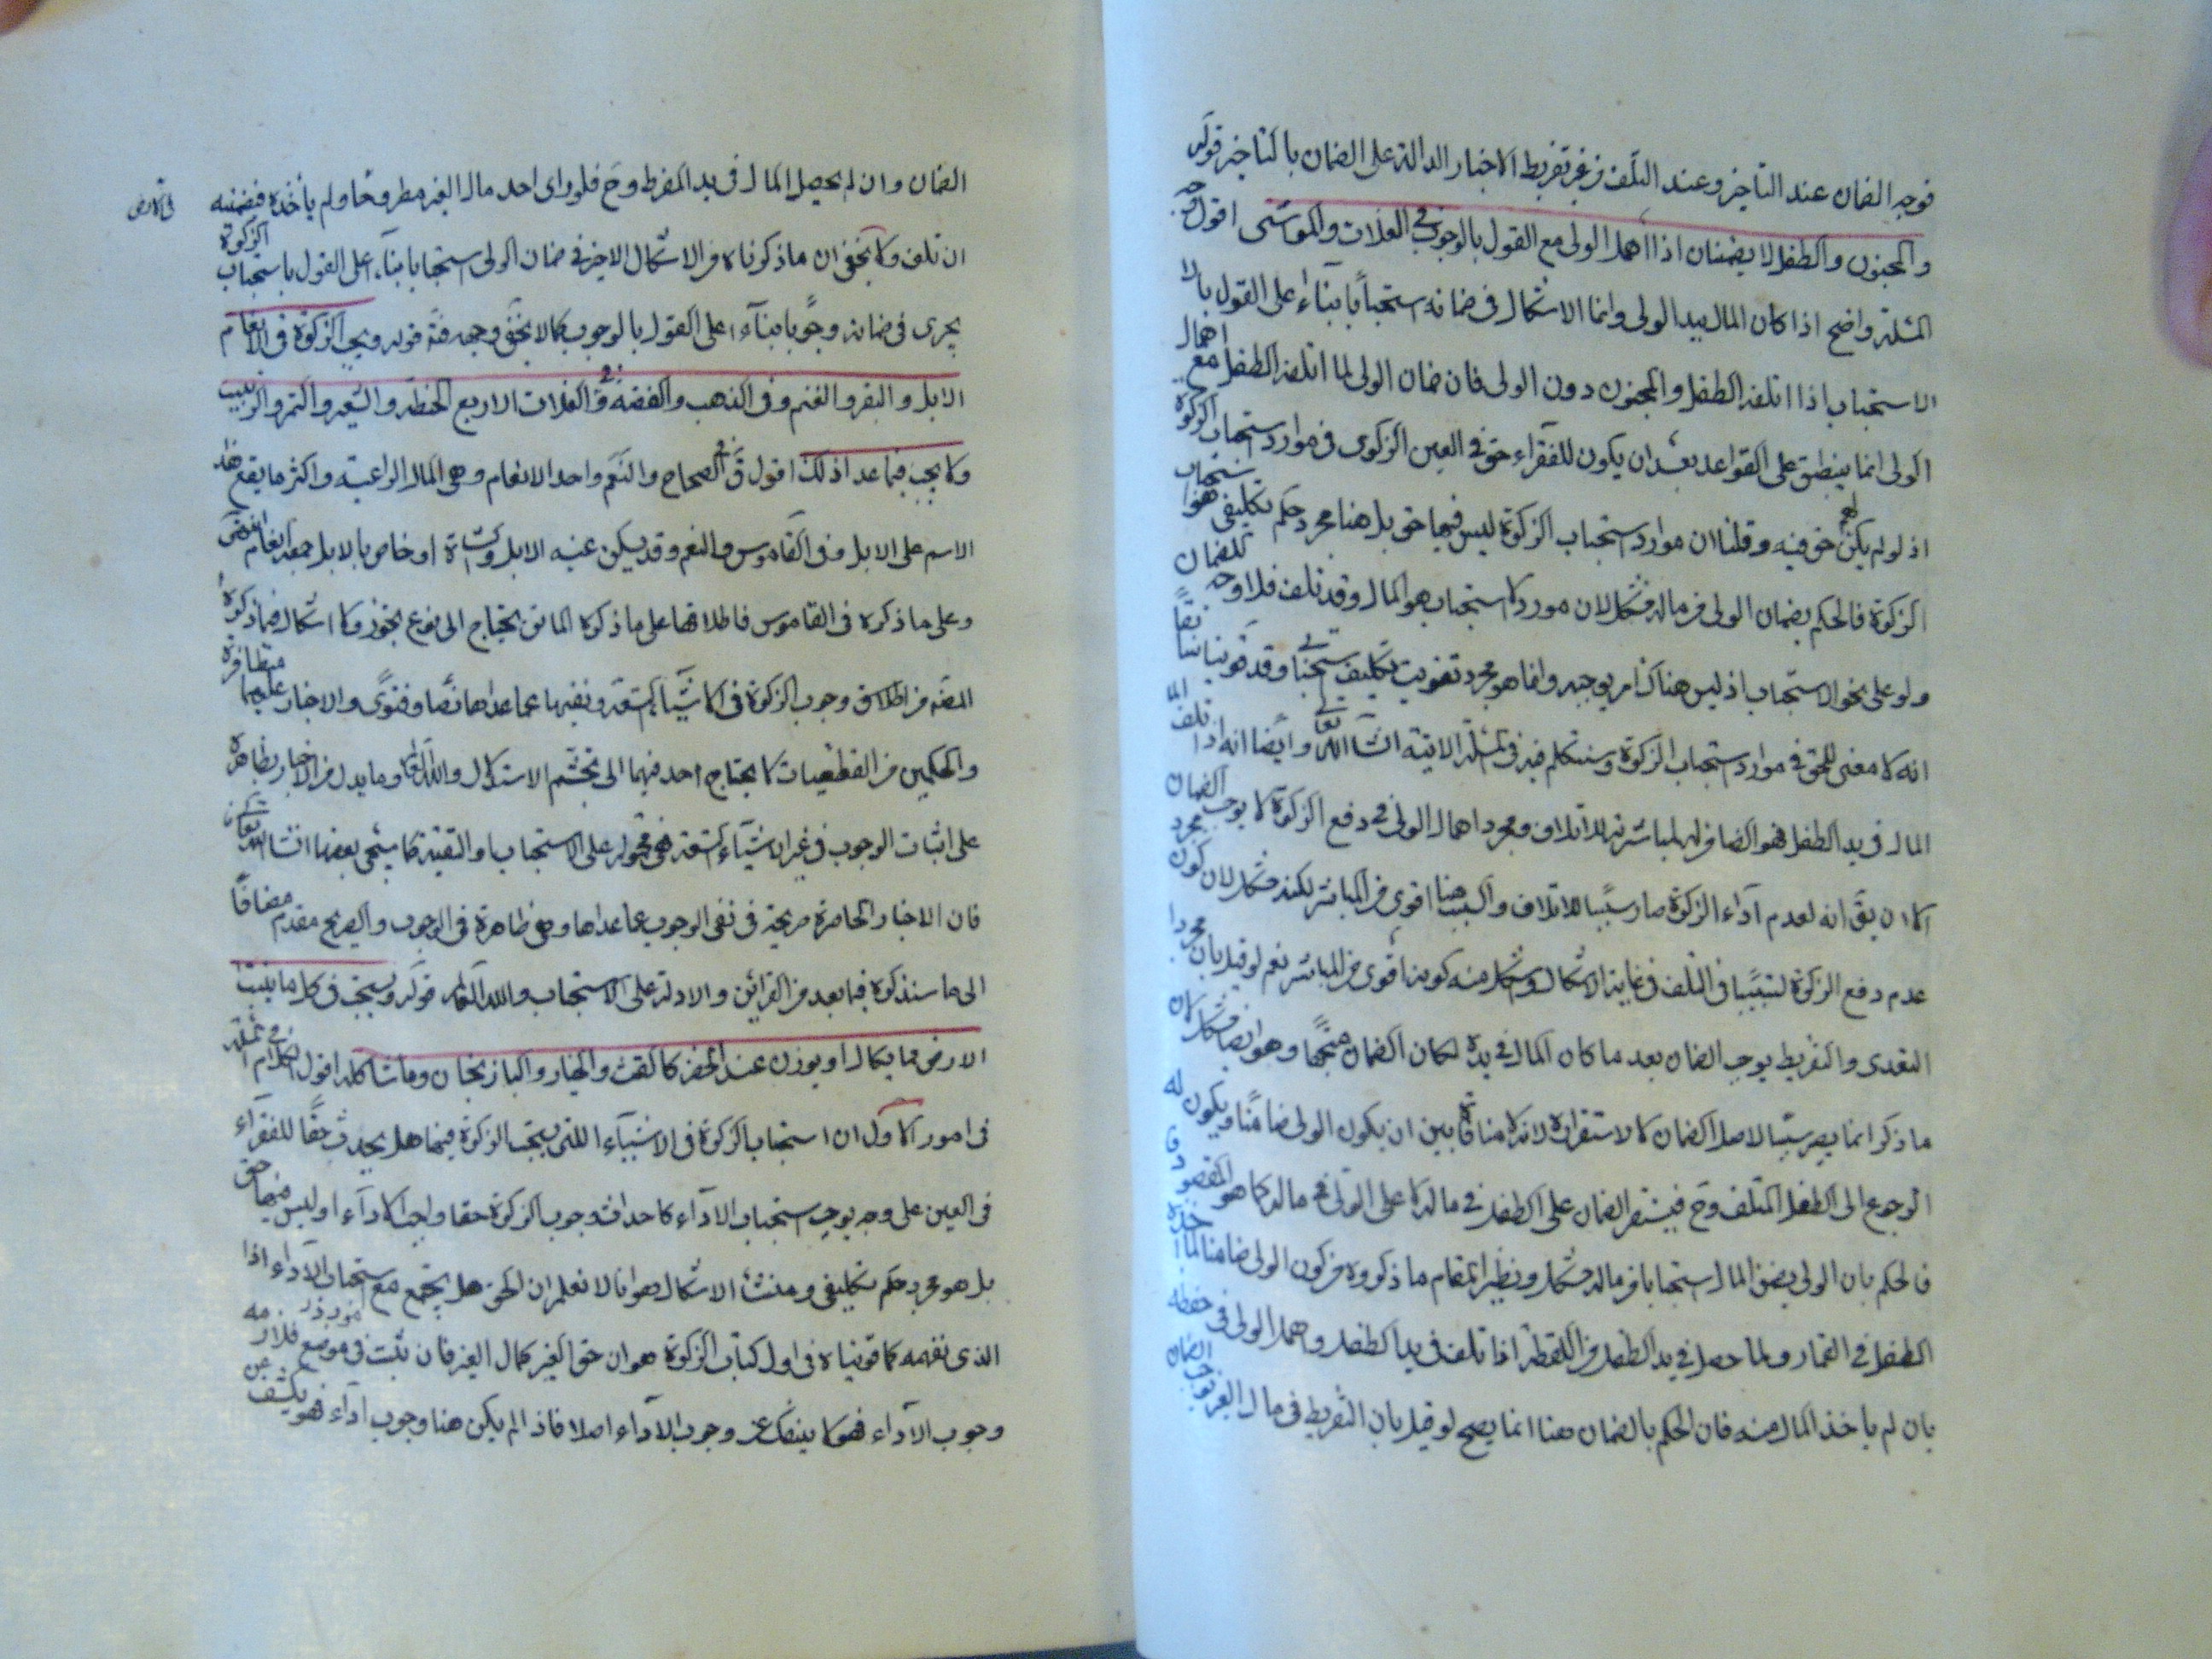 فوجه الضمان عند التأخير وعند التلف من غير تفريط الاخبار الدالة على الضمان بالتاخير قوله
والمجنون والطفل لا يضمنان اذا اهمل الولى مع القول بالوجوب فى الغلات والمواشى اقول وجه
المسئلة واضح اذا كان المال بيد الولى وانما الاشكال فى ضمانه استحبابا بناء على القول بالا
الاستحباب اذا اتلفه الطفل والمجنون دون الولى فان ضمان الولى لما اتلفه الطفل مع اهمال
الولى انما ينطبق على القواعد بعد ان يكون للفقراء حق فى العين الزكوى فى موارد استحباب الزكوة
اذ لو لم يكن لهم حق فيه وقلنا ان موارد استحباب الزكوة ليس فيها حق بل هنا مجرد حكم تكليفى هو استحباب
الزكوة فالحكم بضمان الولى من ماله مشكل لان مورد الاستحباب هو المال وقد تلف فلا وجه للضمان
ولو على نحو الاستحباب اذ ليس هناك امر يوجبه وانما هو مجرد تفويت تكليف استحبابى وقد قوينا سابقا
انه لا معنى للحق فى موارد استحباب الزكوة وسنتكلم فيه فى المسئلة الاتية انشاء الله تعالى وايضا انه اذا تلف
المال فى يد الطفل فهو الضامن له لمباشرته للاتلاف ومجرد اهمال الولى فى دفع الزكوة لا يوجب الضمان
الا ان يق انه لعدم آداء الزكوة صار سببا للاتلاف والسبب هنا اقوى من المباشر لكنه مشكل لان كون مجرد
عدم دفع الزكوة تسبيبا فى التلف فى غاية الاشكال واشكل منه كونه اقوى من المباشر نعم لو قيل بان مجرد
التعدى والتفريط يوجب الضمان بعد ما كان المال فى يده لكان الضمان متجها وهو ايضا مشكل لان
ما ذكر انما يصير سببا لاصل الضمان لا لاستقراره لانه لا منافاة بين ان يكون الولى ضامنا ويكون له
الرجوع الى الطفل المتلف وح فيستقر الضمان على الطفل فى ماله لا على الولى فى ماله كما هو المقصود
فالحكم بان الولى يضمن المال استحبابا من ماله مشكل ونظير المقام ما ذكروه من كون الولى ضامنا لما اخذه
الطفل فى القمار ولما حصل فى يد الطفل من اللقطة اذا تلف فى يد الطفل واهمل الولى فى حفظه
بان لم ياخذ المال منه فان الحكم بالضمان هنا انما يصح لو قيل بان التفريط فى مال الغير يوجب الضمان
الضمان وان لم يحصل المال فى يد المفرط وح فلو راى احد مال الغير مطروحا ولم ياخذه فضمنه
فى الارض
ان تلف ولا يخفى ان ما ذكرناه من الاشكال الاخير فى ضمان الولى استحبابا بناء على القول باستحباب الزكوة
يجرى فى ضمانه وجوبا بناء على القول بالوجوب كما لا يخفى وجهه قوله ويجب الزكوة فى الانعام
الابل والبقر والغنم وفى الذهب والفضة وفى الغلات الاربع الحنطة والشعير والتمر والزبيب
ولا يجب فيما عدا ذلك اقول ق فى الصحاح والنعم واحد الانعام وهى المال الراعية واكثر ما يقع هذا
الاسم على الابل وفى القاموس والنعم وقد يسكن عينه الابل والشاة او خاص بالابل جمعه انعام انتهى
وعلى ما ذكره فى القاموس فاطلاقها على ما ذكره الماتن يحتاج الى نوع تجوز ولا اشكال فيما ذكره
المصنف من اطلاق وجوب الزكوة فى الاشياء التسعة ونفيها عما عداها نصا وفتوى والاخار عليهما متظافرة
والحكمين من القطعيات لا يحتاج احد فيهما الى تجشم الاستدلال والله العالم وما يدل من الاخبار بظاهره
على اثبات الوجوب فى غير الاشياء التسعة فهى محمولة على الاستحباب او التقية كما سيجىء بعضها انشاء الله تعالى
فان الاخبار الحاصرة صريحة فى نفى الوجوب عما عداها وهى ظاهرة فى الوجوب والصريح مقدم مضافا
الى ما سنذكره فيما بعد من القرائن والادلة على الاستحباب والله العالم قوله ويستحب فى كل ما ينبت
الارض مما يكال او يوزن عند الخضر كالقت والخيار والباذنجان وما شاكله اقول الكلام فى المسئلة
فى امور الاول ان استحباب الزكوة فى الاشياء اللتى يستحب الزكوة فيها هل يحدث حقا للفقراء
فى العين على وجه يوجب استحباب الاداء كاحداث وجوب الزكوة حقا واجب الاداء او ليس فيها حق
بل هو مجرد حكم تكليفى ومنشأ الاشكال هو انا لا نعلم ان الحق هل يجتمع مع استحباب الاداء اذا
الذى نفهمه كما قويناه فى اول كتاب الزكوة هو ان حق الغير كمال الغير فان ثبت فى موضع فلا
وجوب الآداء فهو لا ينفك عن وجوب الآداء اصلا فاذا لم يكن هنا وجوب اداء فهو يكشف عن